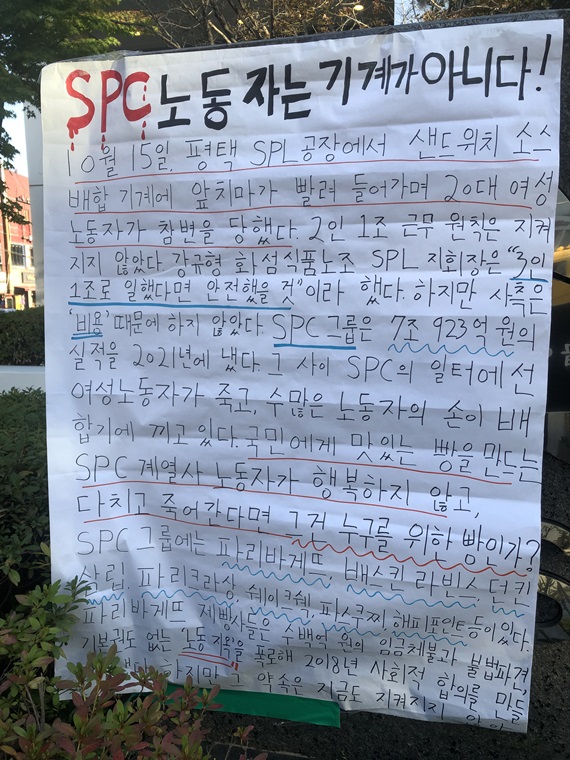 SPC 노동자는 기계가 아니다!
10월 15일. 평택 SPL공장에서 샌드위치 소스
배합 기계에 앞치마가 빨려 들어가며 20대 여성
노동자가 참변을 당했다. 2인 1조 근무 원칙은 지켜
지지 않았다 강규형 화섬식품노조 SPL 지회장은 "3인
1조로 일했다면 안전했을 것"이라 했다. 하지만 사측은
'비용' 때문에 하지 않았다. SPC그룹은 7조 923억 원의
실적을 2021년에 냈다. 그 사이 SPC의 일터에선
여성노동자가 죽고, 수많은 노동자의 손이 배
합기에 끼고 있다. 국민에게 맛있는 빵을 만드는
SPC 계열사 노동자가 행복하지 않고,
다치고 죽어간다면 그건 누구를 위한 빵인가?
SPC그룹에는 파리바게뜨, 배스킨라빈스 던킨
삼립, 파리크라상, 쉐이크쉑, 파스쿠찌, 해피포인트 등이 있다.
파리바게뜨 제빵사들은 수백억 원의 임금체불과 불법파견,
기본권도 없는 노동지옥을 폭로해 2018년 사회적 합의를 만들
하지만 그 약속은 지금도 지켜지지